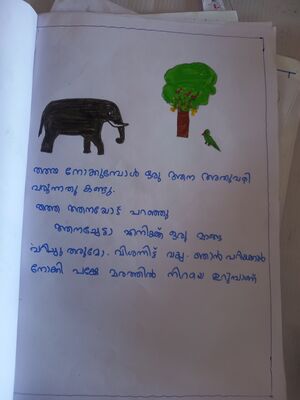 തത്ത നോക്കുമ്പോൾ ഒരു ആന അതുവഴി
വരുന്നതു കണ്ടു.
തത്ത ആനയോട് പറഞ്ഞു
ആനച്ചേട്ടാ എനിക്ക് ഒരു മാമ്പ
ഴം തരുമോ. വിശന്നിട്ട് വയ്യ. ഞാൻ പറിക്കാൻ
നോക്കി പക്ഷേ മരത്തിൽ നിറയെ ഉറുമ്പാണ്